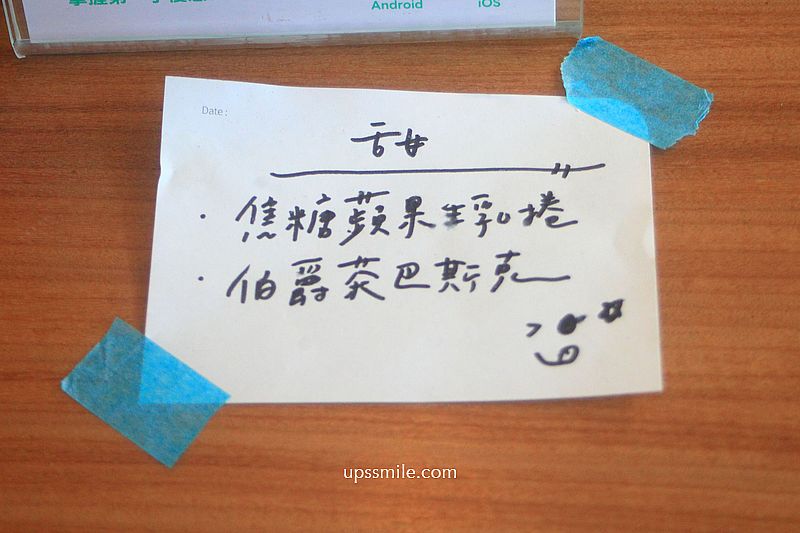 Android
iOS
Date:
甜
焦糖蘋果生乳捲
伯爵茶巴斯克
upssmile.com